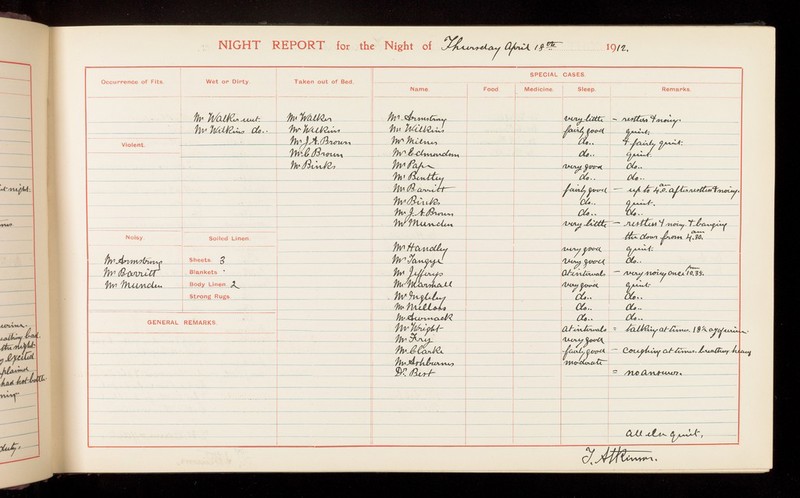 NIGHT REPORT for the Night of Thursday April 18th 1912.
Occurrence of Fits.
Wet or Dirty.
Taken out of Bed.
SPECIAL CASES.
Name.
Food.
Medicine.
Sleep.
Remarks.
Mr Walker wet
Mr Watkins do..
Violent.
Noisy.
Mr Armstrong
Mr Barritt
Mr Munden
Soiled Linen.
Sheets. 3
Blankets "
Body Linen 2
Strong Rugs.
Mr Walker
Mr Watkins
Mr J.A. Brown
Mr C Brown
Mr Binks
Mr Armstrong very little – restless & noisy.
Mr Watkins fairly good quiet.
Mr Milnes do.. & fairly quiet.
Mr Edmondson do.. quiet.
Mr Pa very good do..
Mr Bentley do.. do..
Mr Barritt fairly good – up to 4.0 am after restless & noisy.
Mr Binks do.. quiet.
Mr J.A. Brown do.. do..
Mr Munden very little – restless & noisy & banging
the door from 4.30. am
Mr Handley very good quiet.
Mr Tangye very good do..
Mr Jefferys at intervals – very noisy once 10.35.
Mr Marshall very good quiet
Mr Ingleby do.. do..
Mr Mellons do.. do..
Mr do.. do..
Mr Wright at intervals = talking at times. 18 oz of urine
Mr Fry very good
Mr C Clarke fairly good – coughing at times. breathing heavy
Mr Ashburns moderate
Dr Bert = no answer.
GENERAL REMARKS.
All else quiet,
J. Atkinson.